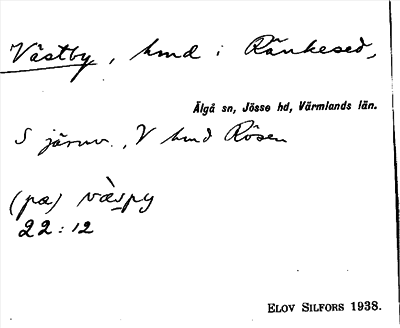 Västby, hmd i Ränkesed,
Älgå sn, Jösse hd, Värmlands län.
S järnv., V hmd Rösen
(pa) vä̀spy
22:12
ELOV SILFORS 1938.